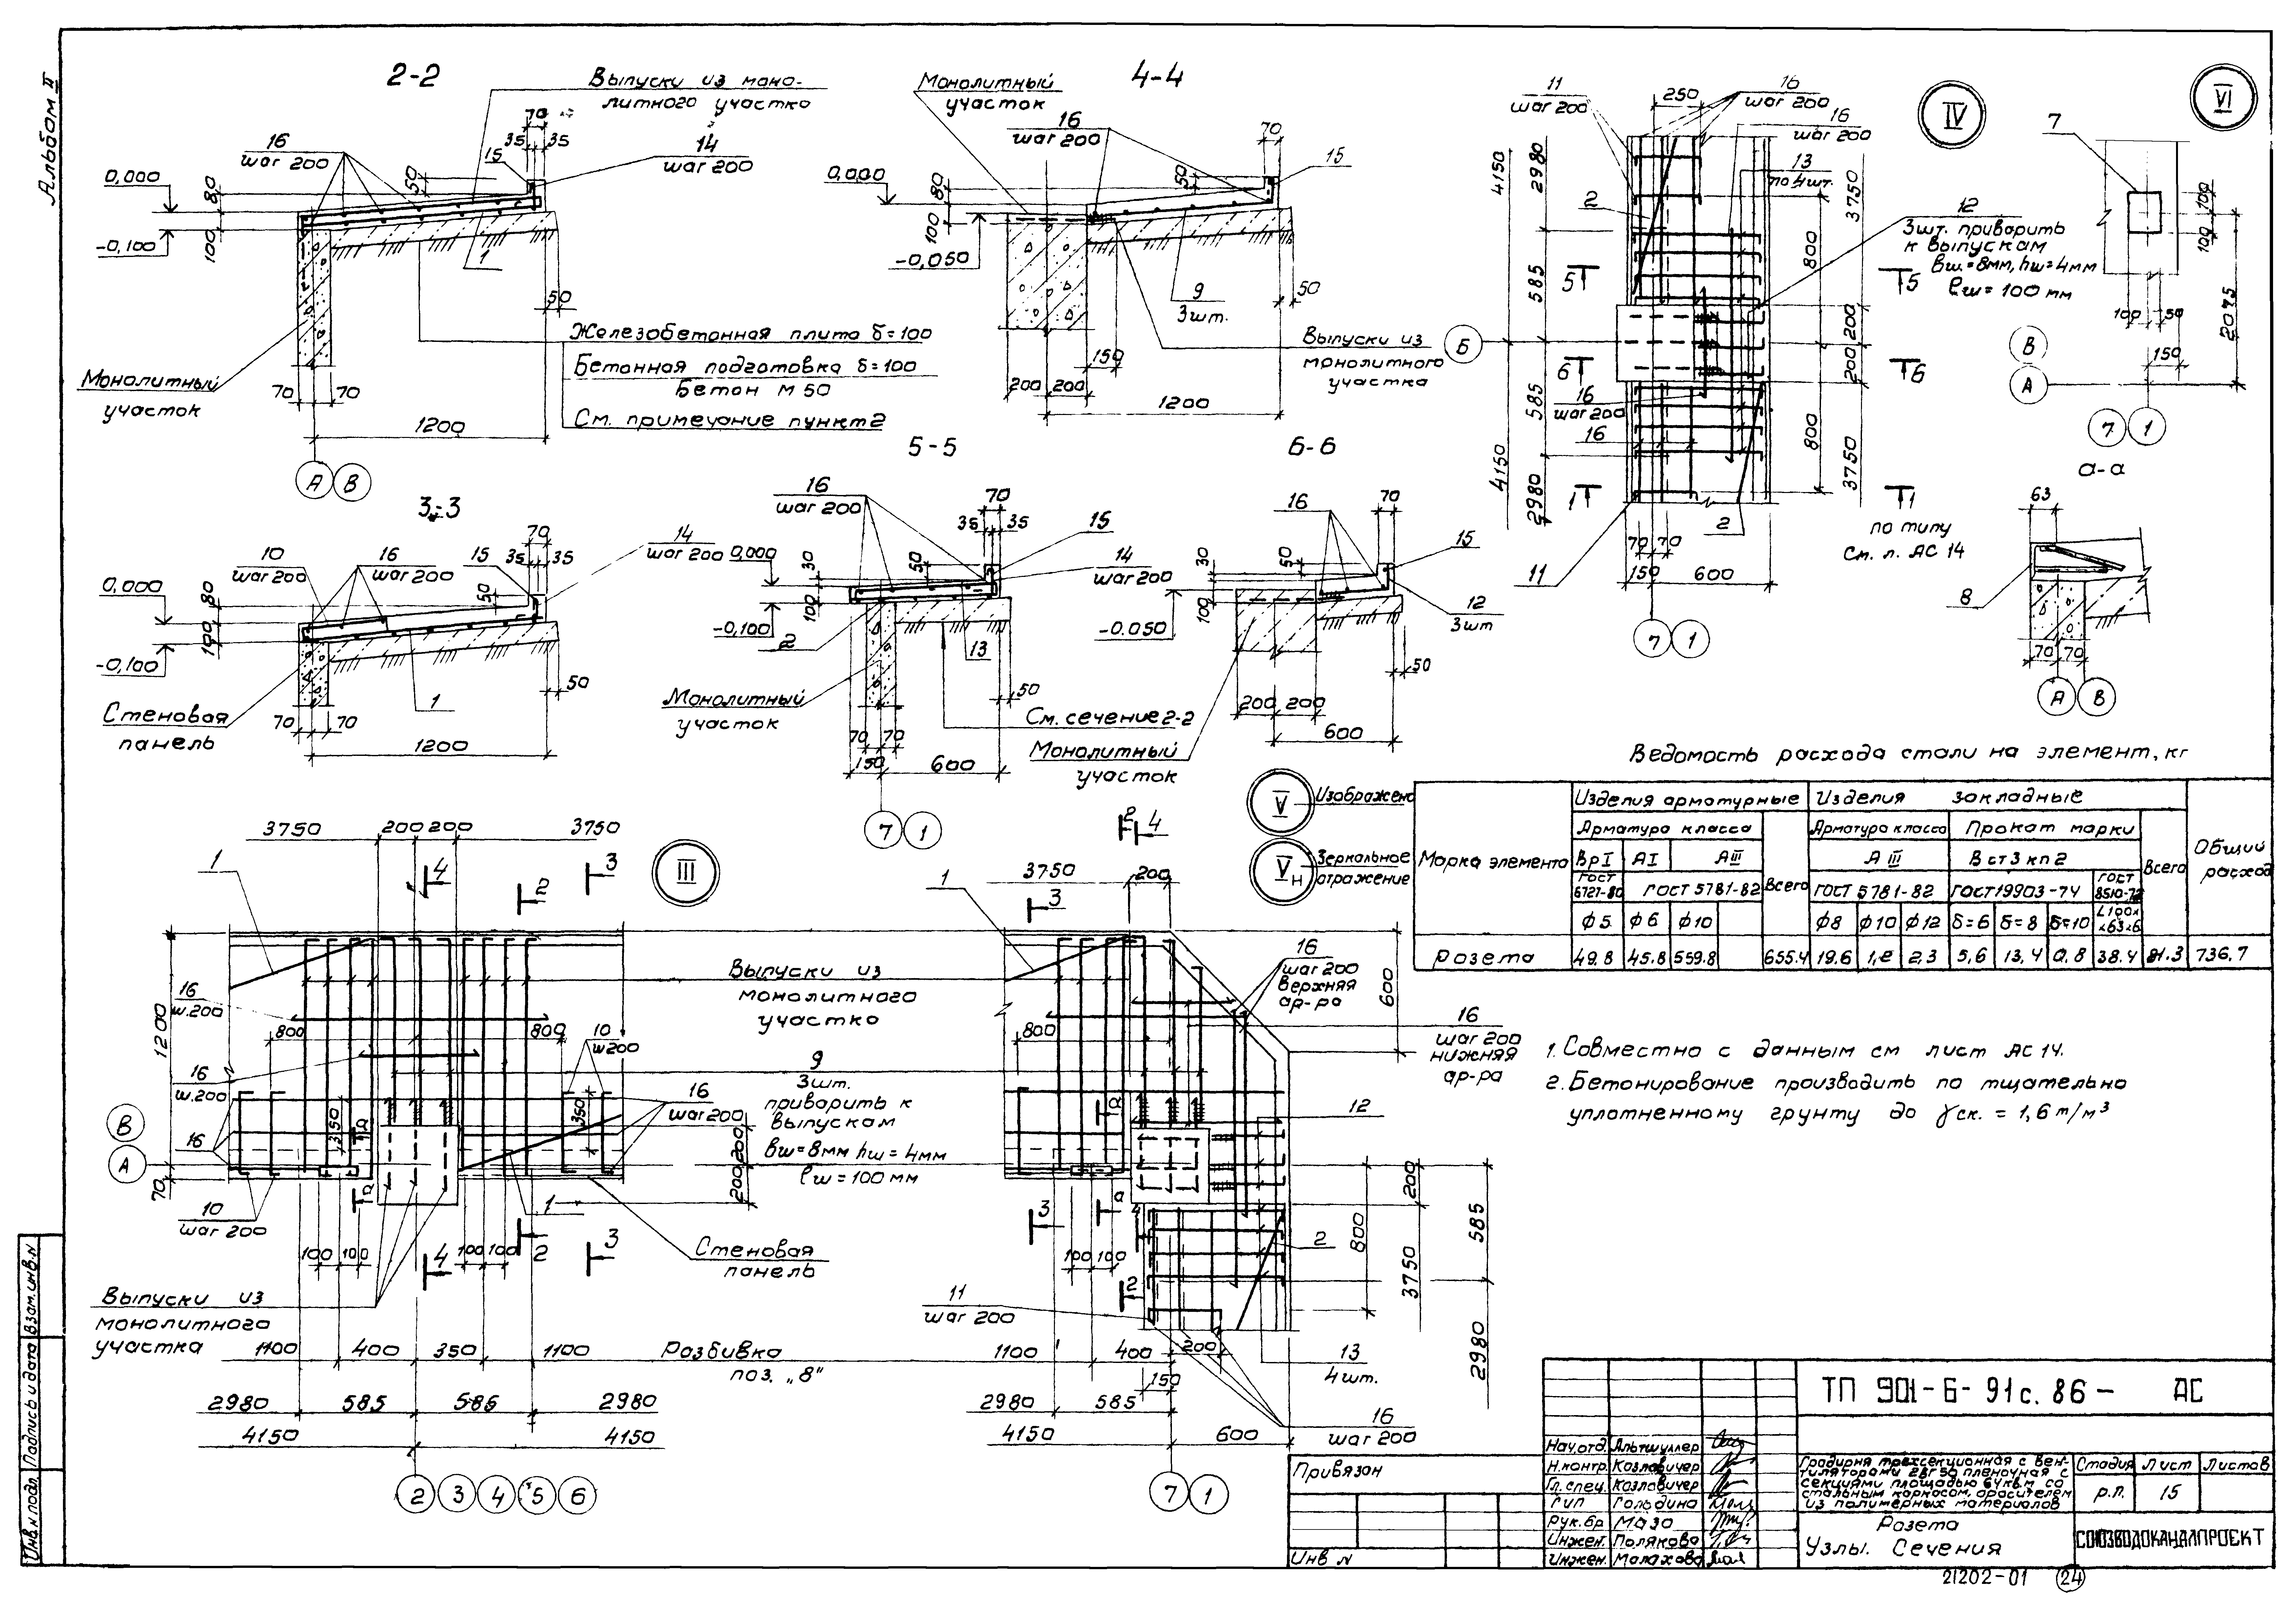 Альбом II
2-2
Выпуски из моно-
литного участка
16
шаг 200
70
35
35
15
14
шаг 200
50
0,000
80
-0,100
100
1
50
Железобетонная плита δ=100
Бетонная подготовка δ=100
Бетон М 50
См. примечание пункт 2
Монолитный
участок
70
70
1200
А
В
4-4
Монолитный
участок
16
шаг 200
70
15
50
0,000
80
100
-0,050
9
3шт.
50
Выпуски из
монолитного
участка
150
200
200
1200
3-3
10
шаг 200
16
шаг 200
15
70
35
35
14
шаг 200
50
0,000
80
100
-0,100
1
50
Стеновая
панель
70
70
1200
5-5
16
шаг 200
70
35
35
15
14
шаг 200
0,000
30
50
100
-0,100
2
13
50
Монолитный
участок
См. сечение 2-2
70
70
150
600
7
1
6-6
16
70
15
30
50
100
-0.050
12
3шт
50
200
200
600
Монолитный
участок
IV
11
шаг 200
250
16
шаг 200
16
шаг 200
13
по 4шт.
2
12
3шт. приварить
к выпускам
bш.=8мм, hш=4мм
ℓш=100 мм
4150
2980
585
3750
800
200
5
5
Б
6
6
16
шаг 200
16
585
4150
2980
200
800
3750
1
1
по типу
См. л. АС 14
2
11
70
70
150
600
7
1
VI
7
100
100
2075
100
50
150
В
А
7
1
а-а
63
8
70
70
А
В
Ведомость расхода стали на элемент, кг
Марка элемента
Изделия арматурные
Изделия закладные
Общий
расход
Арматура класса
Всего
Арматура класса
Прокат марки
Всего
ВрI
АI
АIII
А III
Вст3кп2
ГОСТ
6727-80
ГОСТ 5781-82
ГОСТ 5781-82
ГОСТ19903-74
ГОСТ
8510-72
ф5
ф6
ф10
ф8
ф10
ф12
δ=6
δ=8
δ=10
L100х
х63х6
Розета
49.8
45.8
559.8
655.4
19.6
1,2
2,3
5,6
13,4
0,8
38.4
81.3
736.7
1. Совместно с данным см лист АС 14.
2. Бетонирование производить по тщательно
уплотненному грунту до γск. = 1,6 т/м³
III
3750
200
200
3750
1
4
2
3
16
ш.200
800
800
10
ш200
1200
16
ш.200
350
350
16
шаг 200
В
А
16
70
10
шаг 200
Выпуски из
монолитного
участка
9
3шт.
приварить к
выпускам
bш=8мм hш=4мм
ℓш=100мм
200
200
1
а
а
100
100
100
100
4
2
3
Стеновая
панель
Выпуски из
монолитного
участка
1100
400
350
1100
Разбивка
поз. „8"
2980
585
586
2980
4150
4150
2
3
4
5
6
V
Изображено
Vн
Зеркальное
отражение
2
4
3750
200
1
3
16
шаг 200
верхняя
ар-ра
600
800
16
шаг 200
нижняя
ар-ра
12
а
а
3
4
2
100
100
200
585
800
3750
2980
2
11
шаг 200
1100
400
200
13
4шт.
150
2980
585
4150
600
16
шаг 200
7
1
ТП 901-6-91с.86- АС
Нач.отд. Альтшуллер
Н.контр. Козлавичер
Гл.спец. Козлавичер
ГИП Гольдина
Рук.бр Мазо
Инжен. Полякова
Инжен. Малахова
Градирня трехсекционная с вен-
тиляторами 2ВГ50 пленочная с
секциями площадью 64кв.м со
стальным каркасом, оросителем
из полимерных материалов
Стадия
Лист
Листов
р.п.
15
Розета
Узлы. Сечения
СОЮЗВОДОКАНАЛПРОЕКТ
Привязан
Инв N
Инв.N подл.
Подпись и дата
Взам.инв.N
21202-01
24